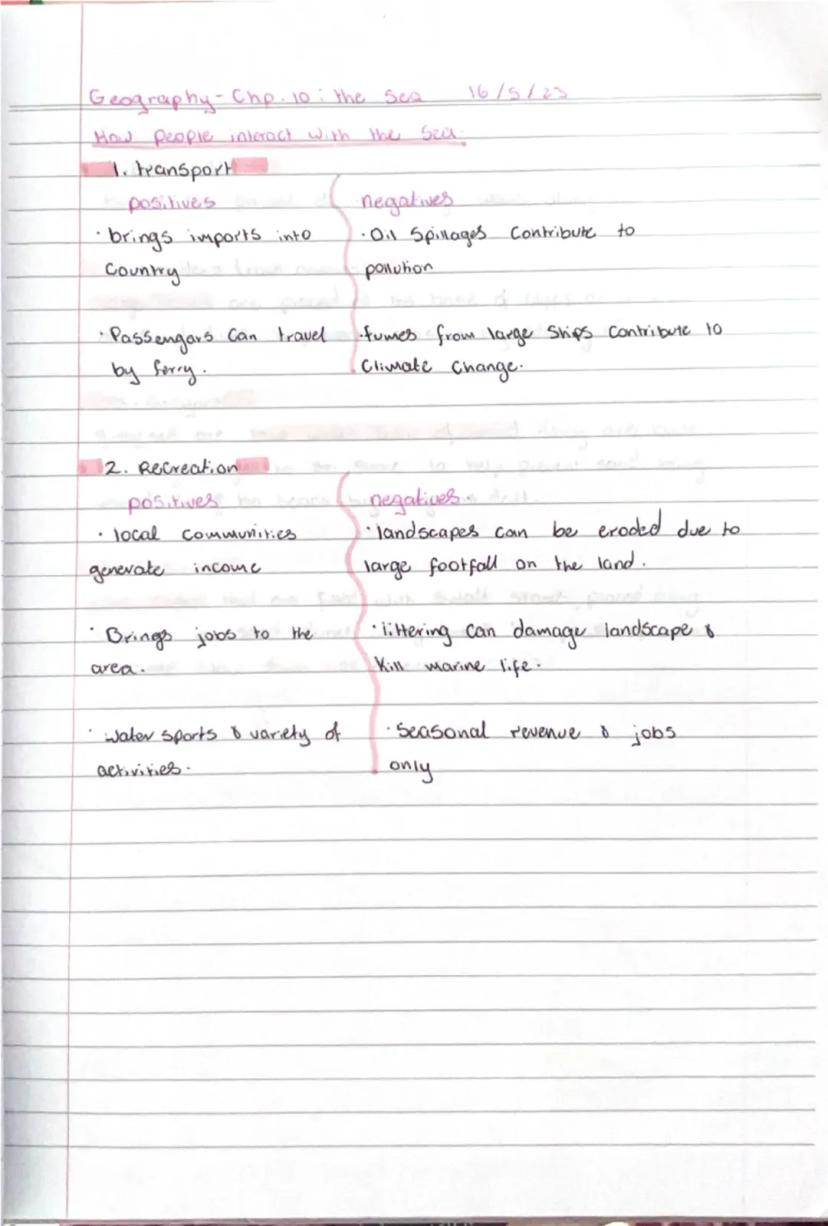 Geography - Chp. 10: the Sea 16/5/23
How people interact with the Sea.
1. transport
positives
· brings imports into
Country
· Passengars Can travel
by ferry.
negatives
· Oil Spillages Contribute to
pollution
· fumes from large Ships Contribute to
Climate Change.
2. Recreation
positives
· local communities
generate income
· Brings jobs to the
area.
· water sports & variety of
activities.
negatives
· landscapes can be eroded due to
large footfall on the land.
· littering can damage landscape &
Kill marine life.
· Seasonal revenue & jobs
only